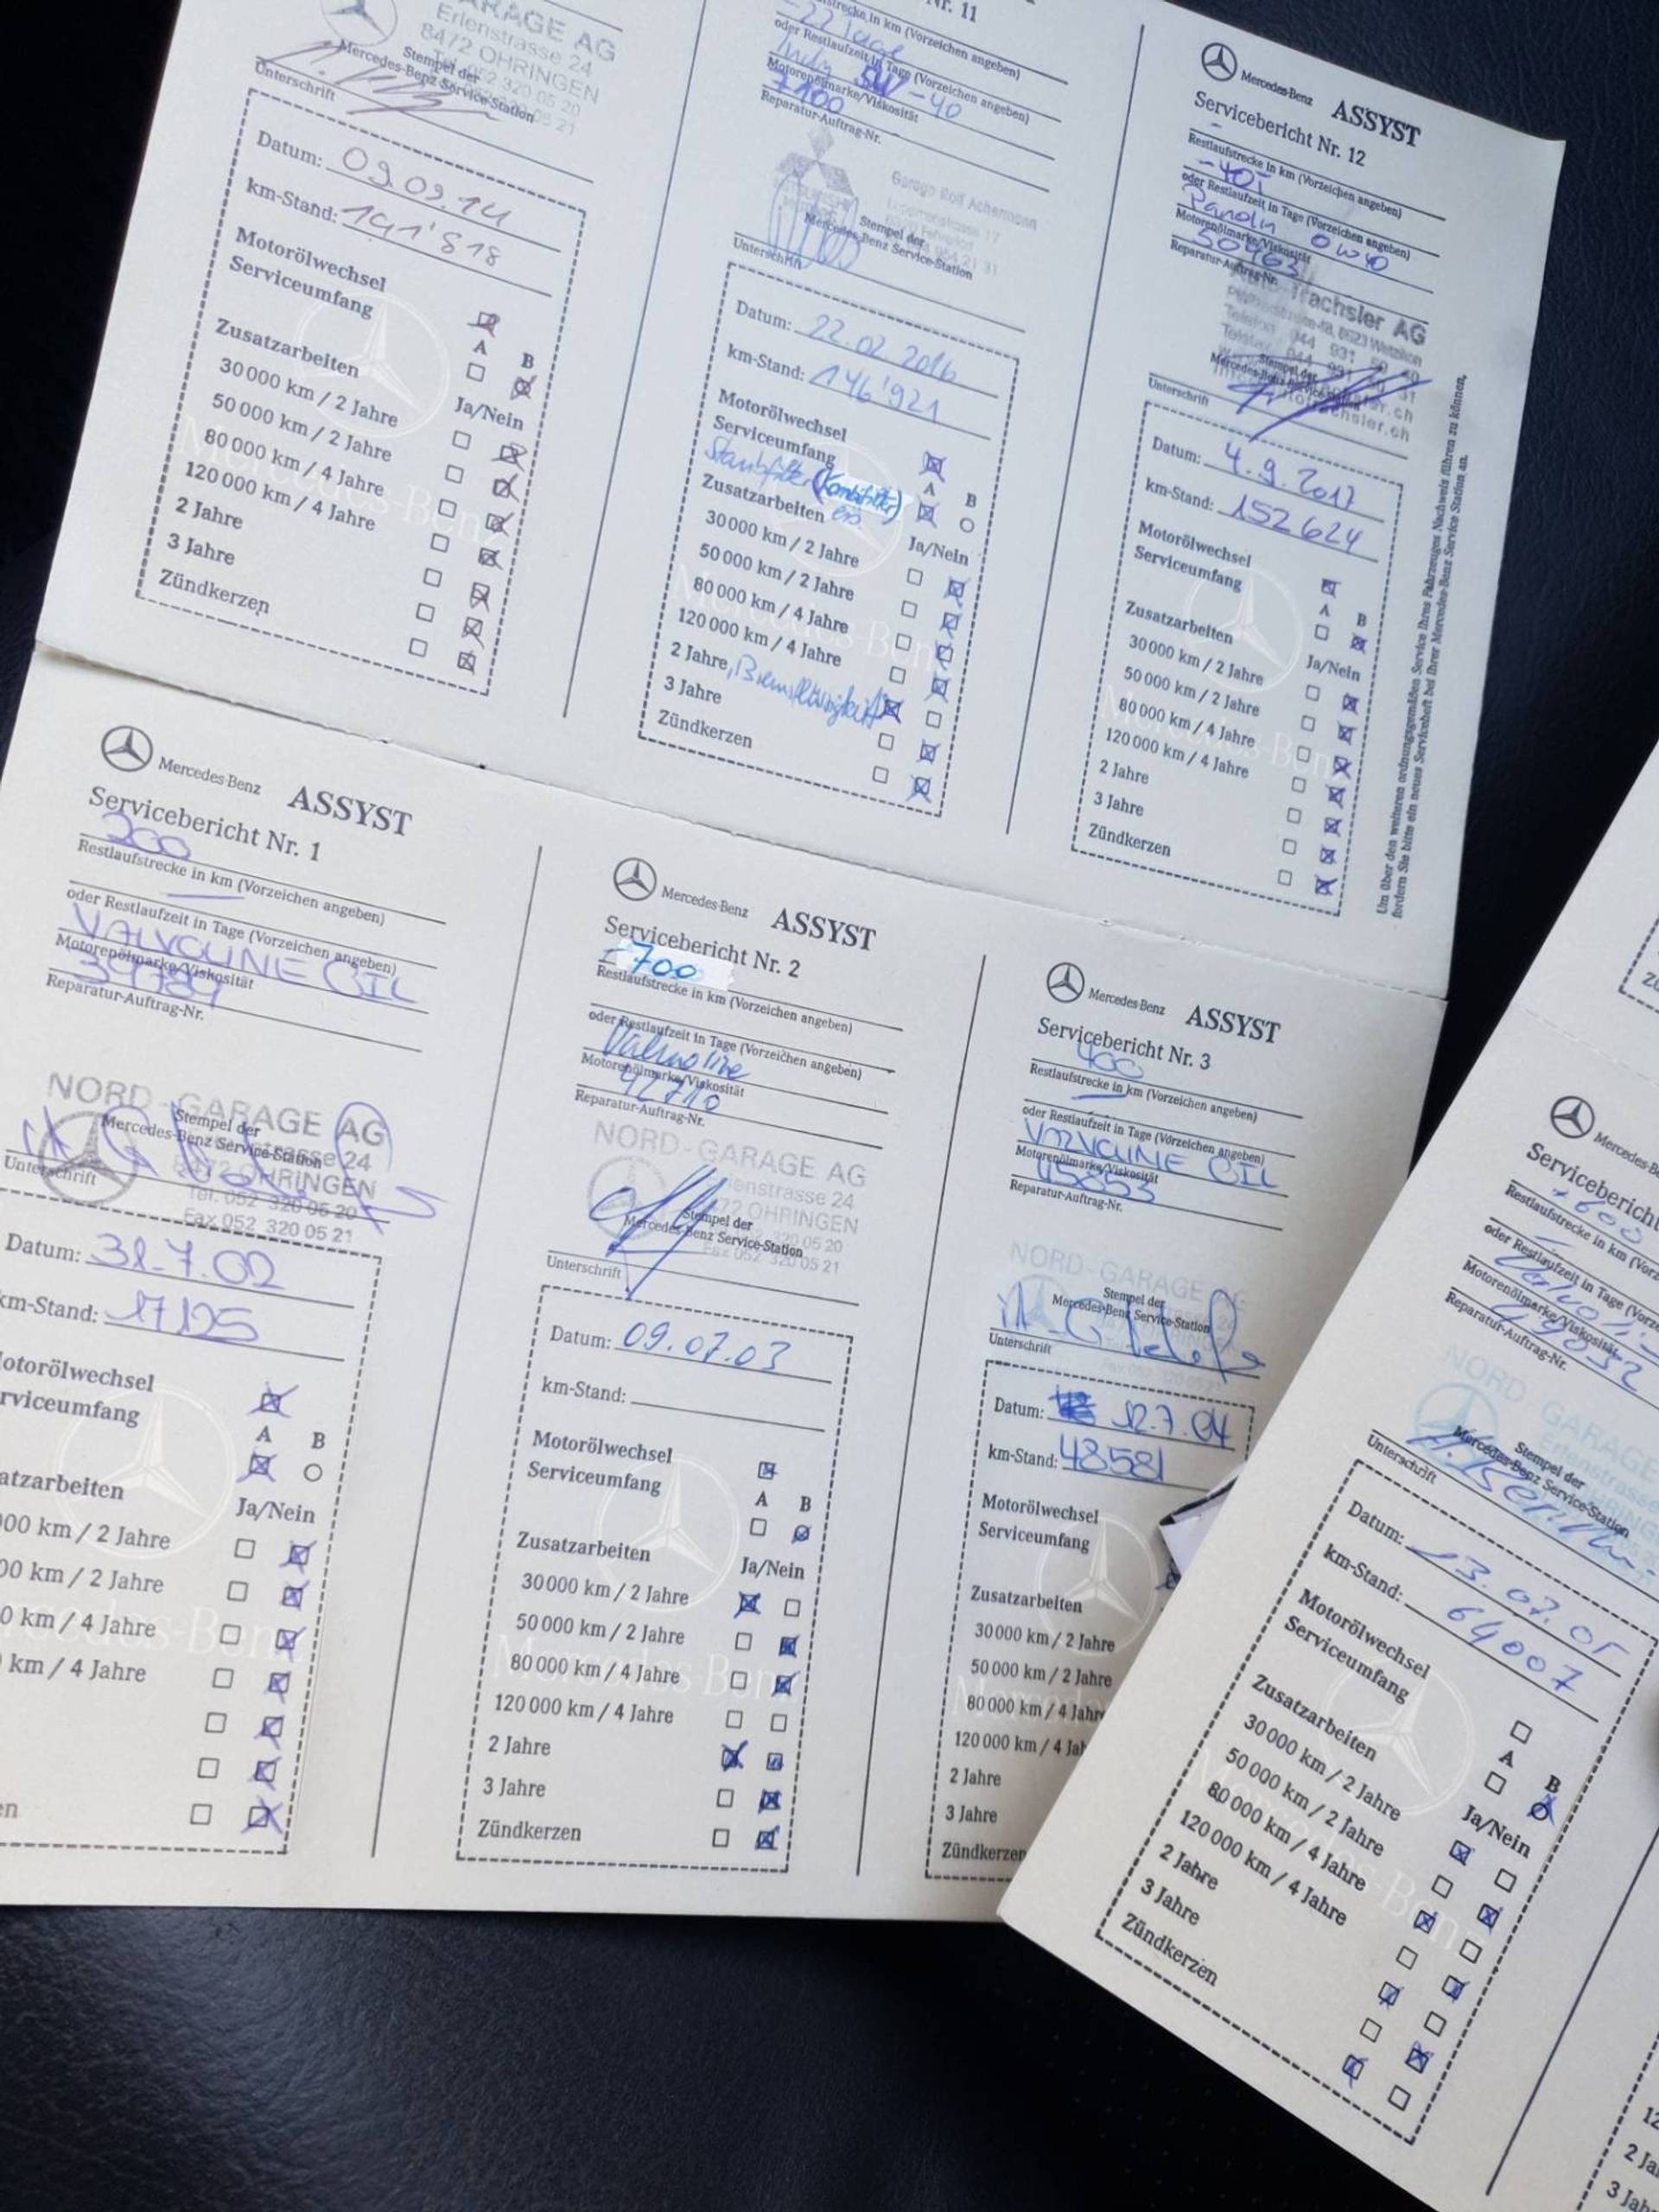 GARAGE AG
Erlenstrasse 24
8472 OHRINGEN
052 320 05 20
05 21
Stempel der
Mercedes-Benz-Service-Station
Unterschrift
Datum: 09.09.14
km-Stand: 141'818
Motorölwechsel
Serviceumfang
A B
Zusatzarbeiten
Ja/Nein
30000 km / 2 Jahre
50000 km / 2 Jahre
80000 km / 4 Jahre
120000 km / 4 Jahre
2 Jahre
3 Jahre
Zündkerzen
Nr. 11
strecke in km (Vorzeichen angeben)
-22 Tage
oder Restlaufzeit in Tage (Vorzeichen angeben)
5W-40
Motorenölmarke/Viskosität
7100
Reparatur-Auftrag-Nr.
Garage Rolf Achermann
Stempel der
Mercedes-Benz Service-Station
Unterschrift
Datum: 22.02.2016
km-Stand: 146'921
Motorölwechsel
Serviceumfang
A B
Staubfilter (Kombifilter) ers.
Zusatzarbeiten
Ja/Nein
30000 km / 2 Jahre
50000 km / 2 Jahre
80000 km / 4 Jahre
120000 km / 4 Jahre
2 Jahre, Bremsflüssigkeit
3 Jahre
Zündkerzen
Mercedes-Benz ASSYST
Servicebericht Nr. 12
-
Restlaufstrecke in km (Vorzeichen angeben)
oder Restlaufzeit in Tage (Vorzeichen angeben)
Panolin 0W40
Motorenölmarke/Viskosität
Reparatur-Auftrag-Nr.
Trachsler AG
8623 Wetzikon
Stempel der
Mercedes-Benz Service-Station
Unterschrift
Datum: 4.9.2017
km-Stand: 152624
Motorölwechsel
Serviceumfang
A B
Zusatzarbeiten
Ja/Nein
30000 km / 2 Jahre
50000 km / 2 Jahre
80000 km / 4 Jahre
120000 km / 4 Jahre
2 Jahre
3 Jahre
Zündkerzen
Um über den weiteren ordnungsgemäßen Service Ihres Fahrzeuges Nachweis führen zu können,
fordern Sie bitte ein neues Serviceheft bei Ihrer Mercedes-Benz Service Station an.
Mercedes-Benz ASSYST
Servicebericht Nr. 1
200
Restlaufstrecke in km (Vorzeichen angeben)
oder Restlaufzeit in Tage (Vorzeichen angeben)
VALVOLINE OIL
Motorenölmarke/Viskosität
39789
Reparatur-Auftrag-Nr.
NORD-GARAGE AG
Stempel der
Mercedes-Benz Service-Station
8472 OHRINGEN
Unterschrift
Tel. 052 320 05 20
Fax 052 320 05 21
Datum: 31.7.02
km-Stand: 17125
Motorölwechsel
rviceumfang
A B
atzarbeiten
Ja/Nein
000 km / 2 Jahre
00 km / 2 Jahre
0 km / 4 Jahre
km / 4 Jahre
en
Mercedes-Benz ASSYST
Servicebericht Nr. 2
-700
Restlaufstrecke in km (Vorzeichen angeben)
oder Restlaufzeit in Tage (Vorzeichen angeben)
Valvoline
Motorenölmarke/Viskosität
42710
Reparatur-Auftrag-Nr.
NORD-GARAGE AG
Erlenstrasse 24
8472 OHRINGEN
Stempel der
Mercedes-Benz Service-Station
320 05 20
Fax 052 320 05 21
Unterschrift
Datum: 09.07.03
km-Stand:
Motorölwechsel
Serviceumfang
A B
Zusatzarbeiten
Ja/Nein
30000 km / 2 Jahre
50000 km / 2 Jahre
80000 km / 4 Jahre
120000 km / 4 Jahre
2 Jahre
3 Jahre
Zündkerzen
Mercedes-Benz ASSYST
Servicebericht Nr. 3
400
Restlaufstrecke in km (Vorzeichen angeben)
oder Restlaufzeit in Tage (Vorzeichen angeben)
VALVOLINE OIL
Motorenölmarke/Viskosität
45853
Reparatur-Auftrag-Nr.
NORD-GARAGE
Stempel der
Mercedes-Benz Service-Station
Unterschrift
Datum: 12.7.04
km-Stand: 48581
Motorölwechsel
Serviceumfang
Zusatzarbeiten
30000 km / 2 Jahre
50000 km / 2 Jahre
80000 km / 4 Jahr
120000 km / 4 Jah
2 Jahre
3 Jahre
Zündkerzen
Mercedes-B
Servicebericht
+600
Restlaufstrecke in km (Vorz
oder Restlaufzeit in Tage (Vorze
Motorenölmarke/Viskosität
Reparatur-Auftrag-Nr.
NORD GARAGE
Erlenstrasse
Stempel der
Mercedes-Benz Service-Station
Unterschrift
Datum: 13.07.05
km-Stand: 64007
Motorölwechsel
Serviceumfang
A B
Zusatzarbeiten
Ja/Nein
30000 km / 2 Jahre
50000 km / 2 Jahre
80000 km / 4 Jahre
120000 km / 4 Jahre
2 Jahre
3 Jahre
Zündkerzen
2 Ja
3 Jah